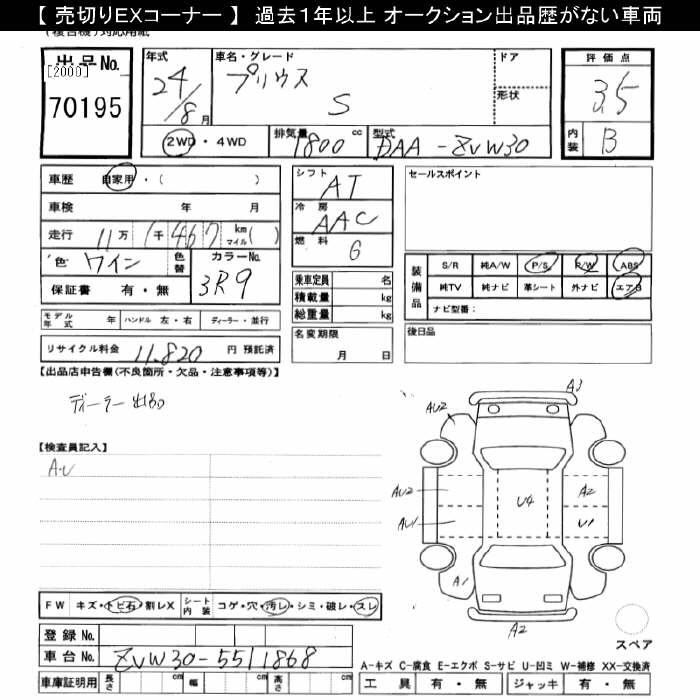 【 売切りEXコーナー 】 過去1年以上 オークション出品歴がない車両
(複合機)対応用紙
出品No.
[2000]
70195
年式
24/8月
車名・グレード
プリウス
S
ドア
形状
評価点
3.5
内装 B
2WD・4WD
排気量 1800 cc
型式 DAA-ZVW30
車歴 自家用・( )
車検 年 月
走行 11万1千467 km マイル( )
色 ワイン 色替
カラーNo. 3R9
保証書 有・無
シフト AT
冷房 AAC
燃料 G
乗車定員 名
積載量 kg
総重量 kg
セールスポイント
装備品
S/R 純A/W P/S P/W ABS
純TV 純ナビ 革シート 外ナビ エアB
ナビ型番:
モデル年式 年 ハンドル 左・右 ディーラー・並行
名変期限
月 日
後日品
リサイクル料金 11,820 円 預託済
【出品店申告欄(不良箇所・欠品・注意事項等)】
ディーラー出品
【検査員記入】
A.U
A3
AU2
AU2
U4
A2
AU1
U1
A1
A2
スペア
FW キズ・トビ石・割レX
シート内装 コゲ・穴・汚レ・シミ・破レ・スレ
登録No.
車台No. ZVW30-5511868
車庫証明用 長さ cm 幅 cm 高さ cm
A-キズ C-腐食 E-エクボ S-サビ U-凹ミ W-補修 XX-交換済
工具 有・無 ジャッキ 有・無